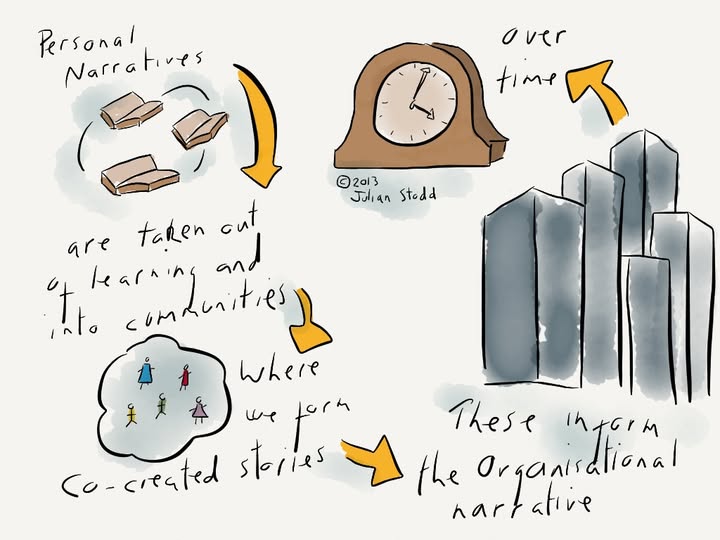 Personal
Narratives
are taken out
of learning and
into communities
where
we form
co-created stories
These inform
the Organisational
narrative
over
time
©2013
Julian Stodd